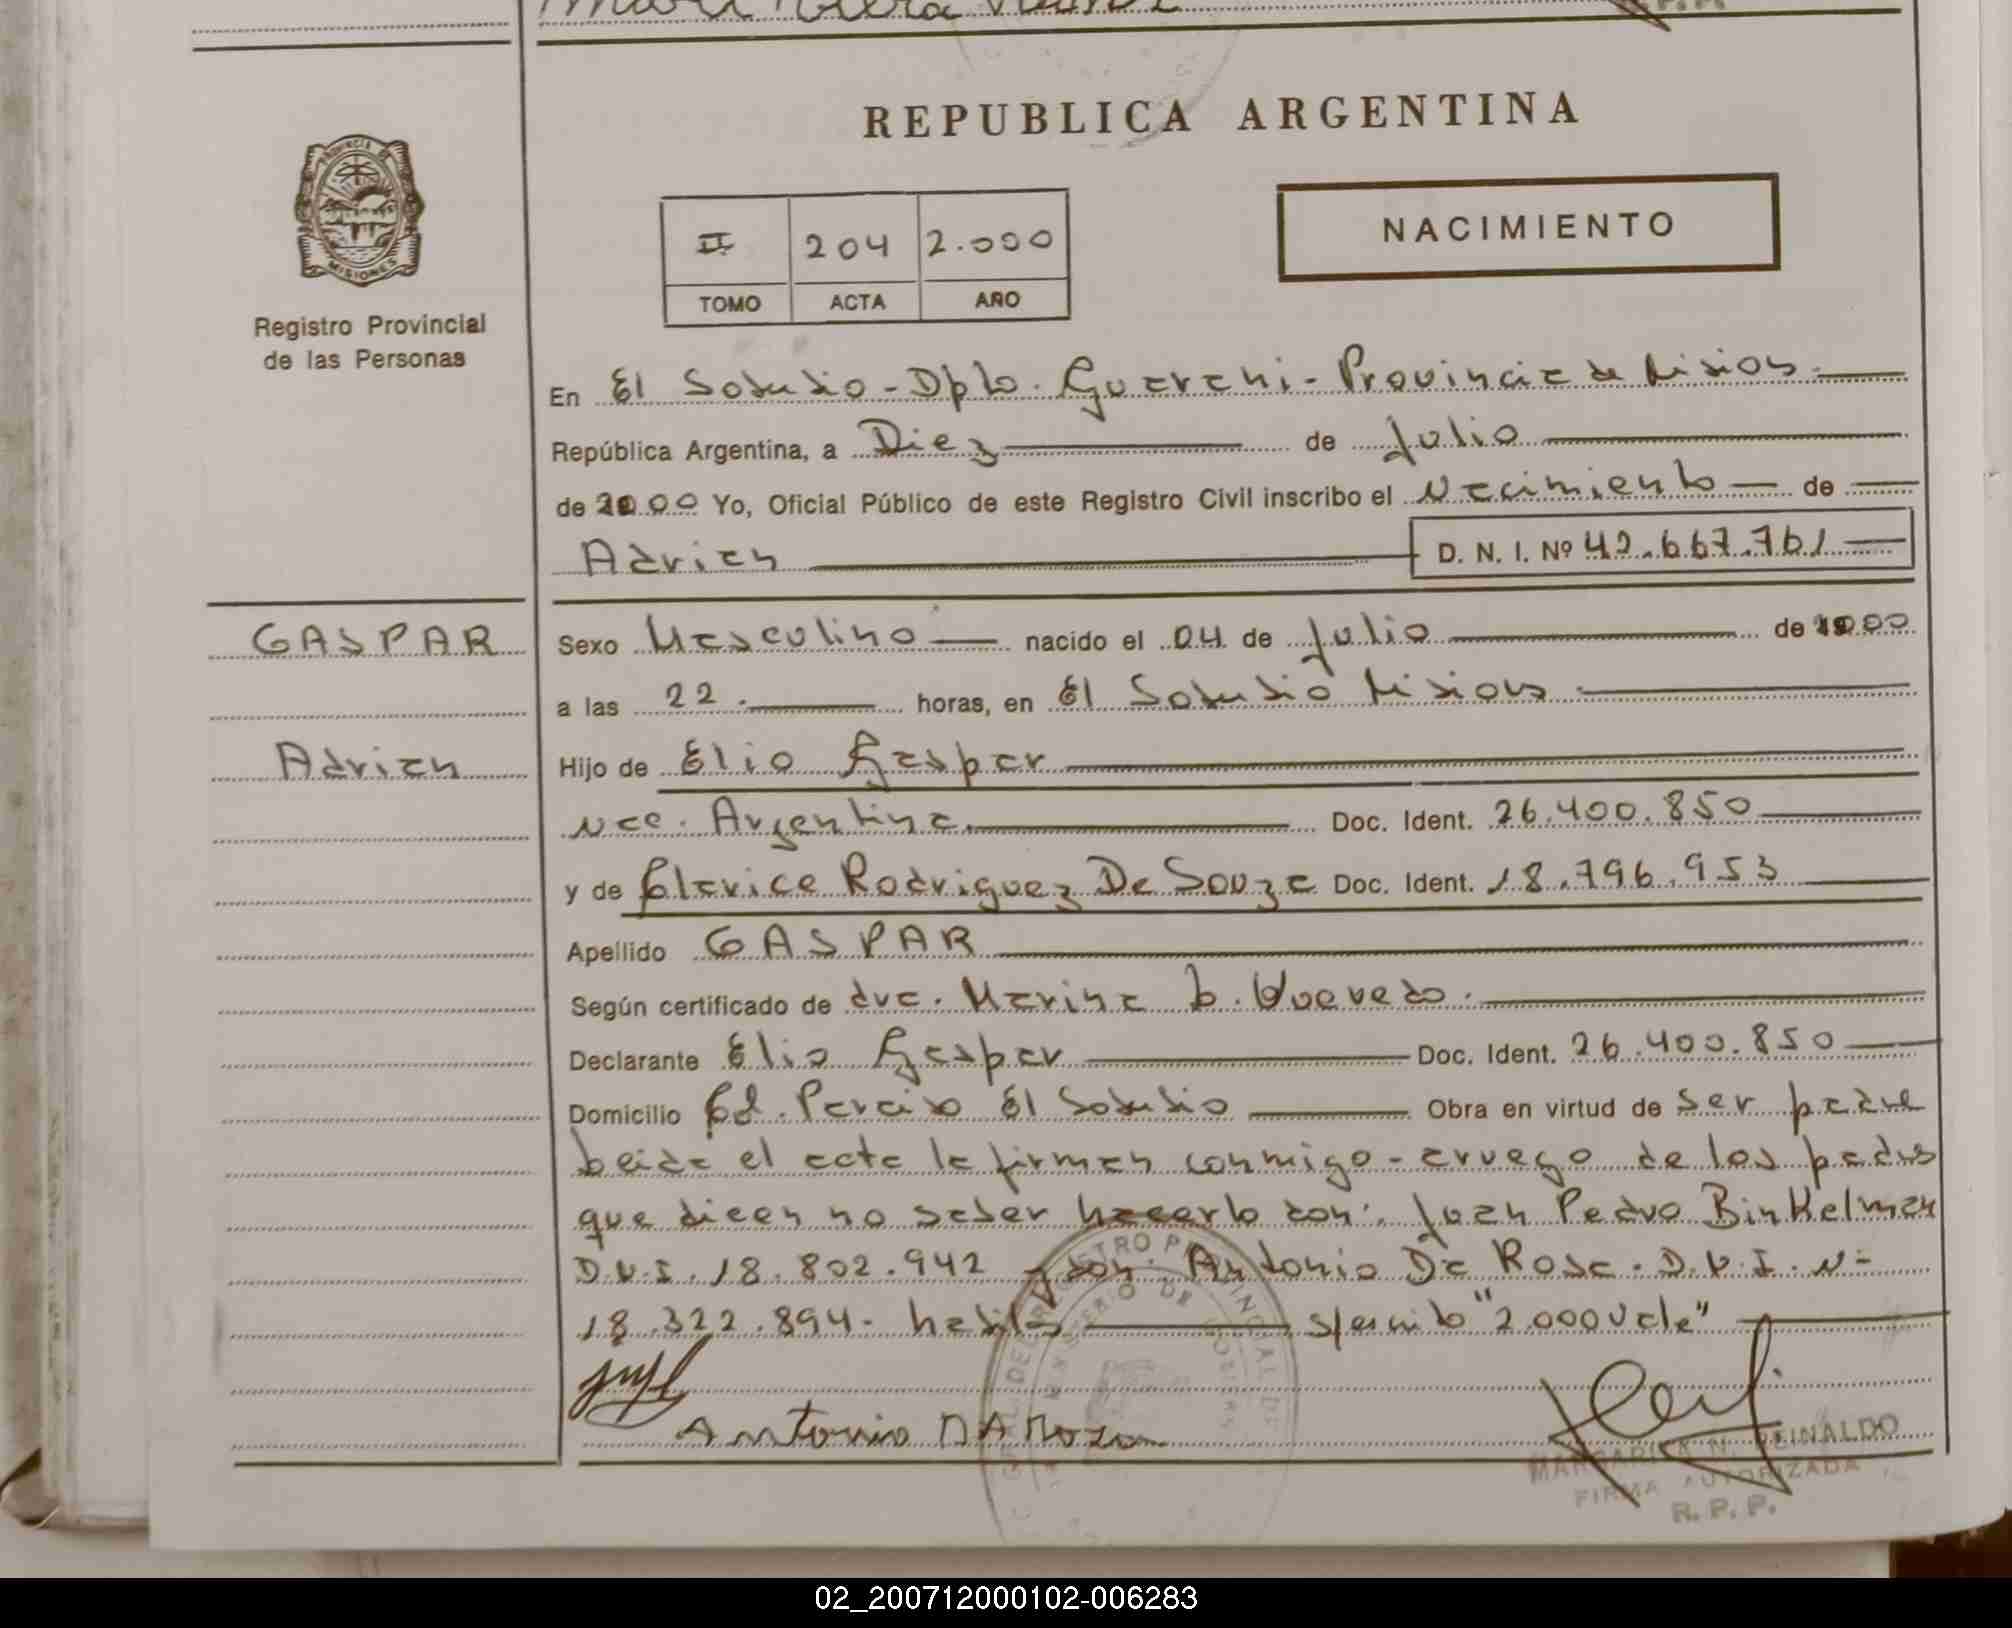 REPUBLICA ARGENTINA
PROVINCIA DE
MISIONES
Registro Provincial
de las Personas
NACIMIENTO
II 204 2.000
TOMO ACTA AÑO
En El Soberbio - Dpto. Guarani - Provincia de Misiones.
República Argentina, a Diez de Julio
de 2000 Yo, Oficial Público de este Registro Civil inscribo el Nacimiento de
Adrian D. N. I. Nº 42.667.761
GASPAR
Sexo Masculino nacido el 04 de Julio de 2000
a las 22. horas, en El Soberbio Misiones.
Adrian
Hijo de Elio Gaspar
Nac. Argentina. Doc. Ident. 26.400.850
y de Clarice Rodriguez De Souza Doc. Ident. 18.796.953
Apellido GASPAR
Según certificado de dra. Marina b. Quevedo.
Declarante Elio Gaspar Doc. Ident. 26.400.850
Domicilio Cd. Paraiso El Soberbio Obra en virtud de ser padre
Leida el acta la firman conmigo - aruego de los padres
que dicen no saber hacerlo don: Juan Pedro Binkelman
D.N.I. 18.802.942 y don: Antonio Da Rosa. D.N.I. Nº
18.322.894. habiles s/escrito "2.000 Vale"
Antonio DA Roza
MARGARITA N. REINALDO
FIRMA AUTORIZADA
R. P. P.
02_200712000102-006283